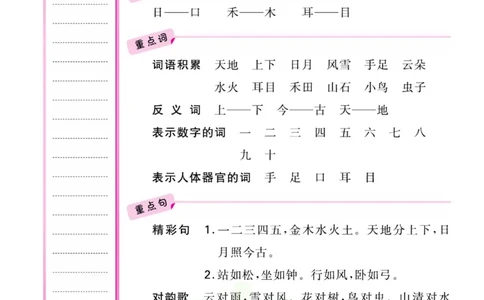 日——口 禾——木 耳——目
重点词
词语积累 天地 上下 日月 风雪 手足 云朵
水火 耳目 禾田 山石 小鸟 虫子
反义词 上——下 今——古 天——地
表示数字的词 一 二 三 四 五 六 七 八
九 十
表示人体器官的词 手 足 口 耳 目
重点句
精彩句 1.一二三四五,金木水火土。天地分上下,日
月照今古。
2.站如松,坐如钟。行如风,卧如弓。
对韵歌 云对雨,雪对风。花对树,鸟对虫。山清对水